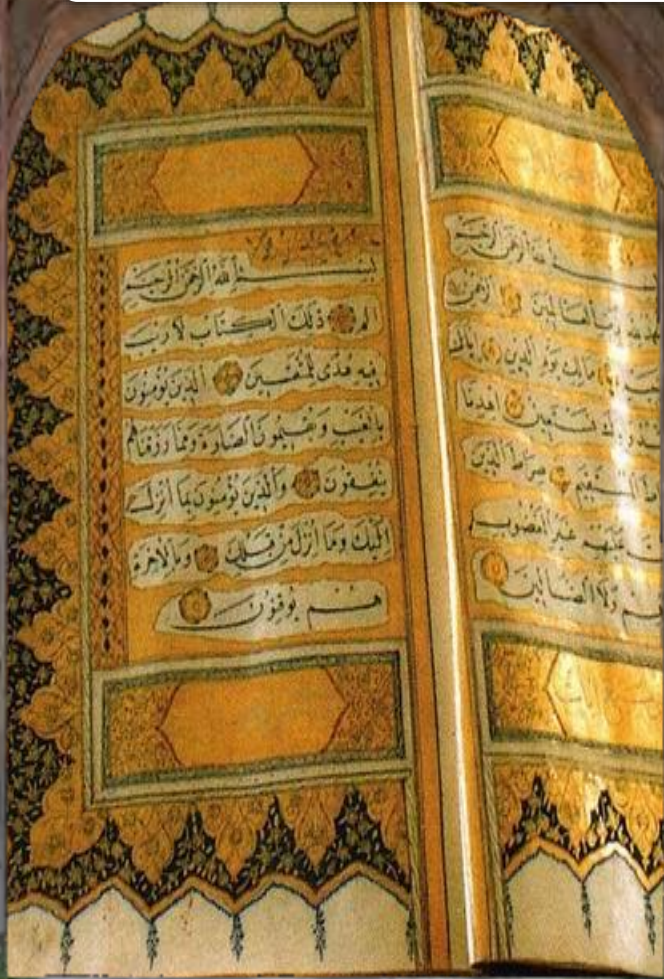 بسم الله الرحمن الرحيم
الحمد لله رب العالمين الرحمن
مالك يوم الدين اياك
نستعين اهدنا
المستقيم صراط الذين
عليهم غير المغضوب
ولا الضالين
بسم الله الرحمن الرحيم
الم ذلك الكتاب لا ريب
فيه هدى للمتقين الذين يؤمنون
بالغيب ويقيمون الصلوة ومما رزقناهم
ينفقون والذين يؤمنون بما انزل
اليك وما انزل من قبلك وبالاخرة
هم يوقنون